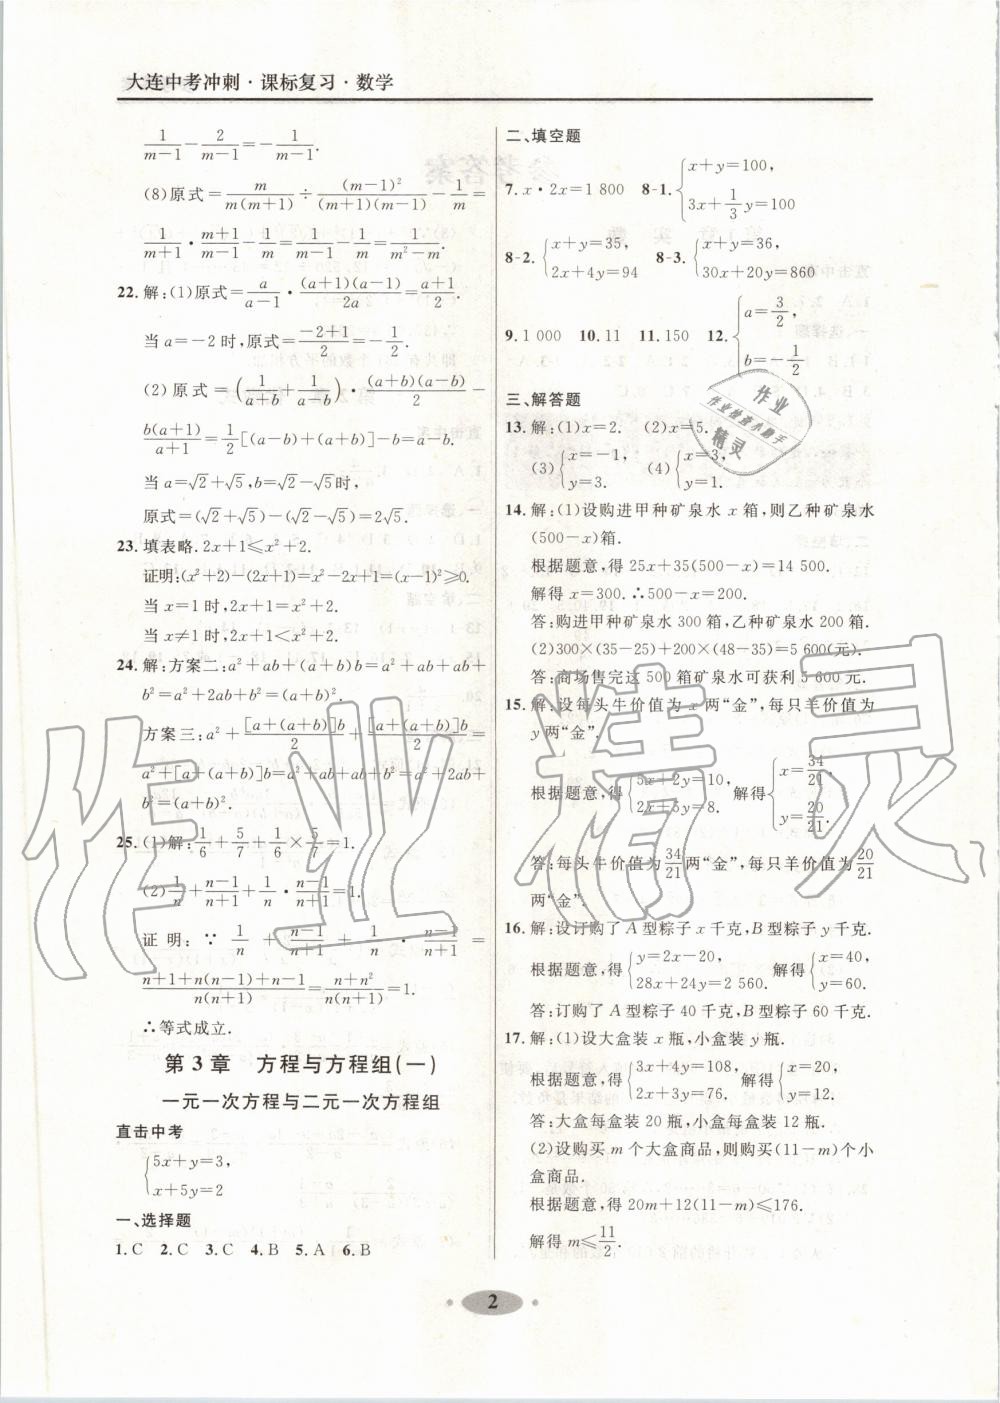 大连中考冲刺·课标复习·数学
1/(m-1) - 2/(m-1) = -1/(m-1).
(8)原式= m/(m(m+1)) ÷ (m-1)²/((m+1)(m-1)) - 1/m =
1/(m+1) · (m+1)/(m-1) - 1/m = 1/(m-1) - 1/m = 1/(m²-m).
22.解:(1)原式= a/(a-1) · (a+1)(a-1)/(2a) = (a+1)/2.
当a=-2时,原式= (-2+1)/2 = -1/2.
(2)原式= (1/(a+b) + 1/(a-b)) · (a+b)(a-b)/2 -
b(a+1)/(a+1) = 1/2[(a-b)+(a+b)]-b=a-b.
当a=√2+√5,b=√2-√5时,
原式=(√2+√5)-(√2-√5)=2√5.
23.填表略.2x+1≤x²+2.
证明:(x²+2)-(2x+1)=x²-2x+1=(x-1)²≥0.
当x=1时,2x+1=x²+2.
当x≠1时,2x+1<x²+2.
24.解:方案二:a²+ab+(a+b)b=a²+ab+ab+
b²=a²+2ab+b²=(a+b)².
方案三:a²+ [a+(a+b)]b/2 + [a+(a+b)]b/2 =
a²+[a+(a+b)]b=a²+ab+ab+b²=a²+2ab+
b²=(a+b)².
25.(1)解: 1/6 + 5/7 + 1/6 × 5/7 =1.
(2) 1/n + (n-1)/(n+1) + 1/n · (n-1)/(n+1) =1.
证明:∵ 1/n + (n-1)/(n+1) + 1/n · (n-1)/(n+1) =
(n+1+n(n-1)+n-1)/(n(n+1)) = (n+n²)/(n(n+1)) =1.
∴等式成立.
第3章 方程与方程组(一)
一元一次方程与二元一次方程组
直击中考
{5x+y=3,
x+5y=2
一、选择题
1.C 2.C 3.C 4.B 5.A 6.B
二、填空题
7.x·2x=1 800 8-1.{x+y=100, 3x+ 1/3 y=100
8-2.{x+y=35, 2x+4y=94 8-3.{x+y=36, 30x+20y=860
9.1 000 10.11 11.150 12.{a= 3/2, b=- 1/2
三、解答题
13.解:(1)x=2. (2)x=5.
(3){x=-1, y=3. (4){x=3, y=1.
14.解:(1)设购进甲种矿泉水x箱,则乙种矿泉水
(500-x)箱.
根据题意,得25x+35(500-x)=14 500.
解得x=300.∴500-x=200.
答:购进甲种矿泉水300箱,乙种矿泉水200箱.
(2)300×(35-25)+200×(48-35)=5 600(元).
答:商场售完这500箱矿泉水可获利5 600元.
15.解:设每头牛价值为x两“金”,每只羊价值为
y两“金”.
根据题意,得{5x+2y=10, 2x+5y=8. 解得{x= 34/21, y= 20/21.
答:每头牛价值为34/21两“金”,每只羊价值为20/21
两“金”.
16.解:设订购了A型粽子x千克,B型粽子y千克.
根据题意,得{y=2x-20, 28x+24y=2 560. 解得{x=40, y=60.
答:订购了A型粽子40千克,B型粽子60千克.
17.解:(1)设大盒装x瓶,小盒装y瓶.
根据题意,得{3x+4y=108, 2x+3y=76. 解得{x=20, y=12.
答:大盒每盒装20瓶,小盒每盒装12瓶.
(2)设购买m个大盒商品,则购买(11-m)个小
盒商品.
根据题意,得20m+12(11-m)≤176.
解得m≤ 11/2.
2
作业
作业检查小助手
精灵
作业精灵